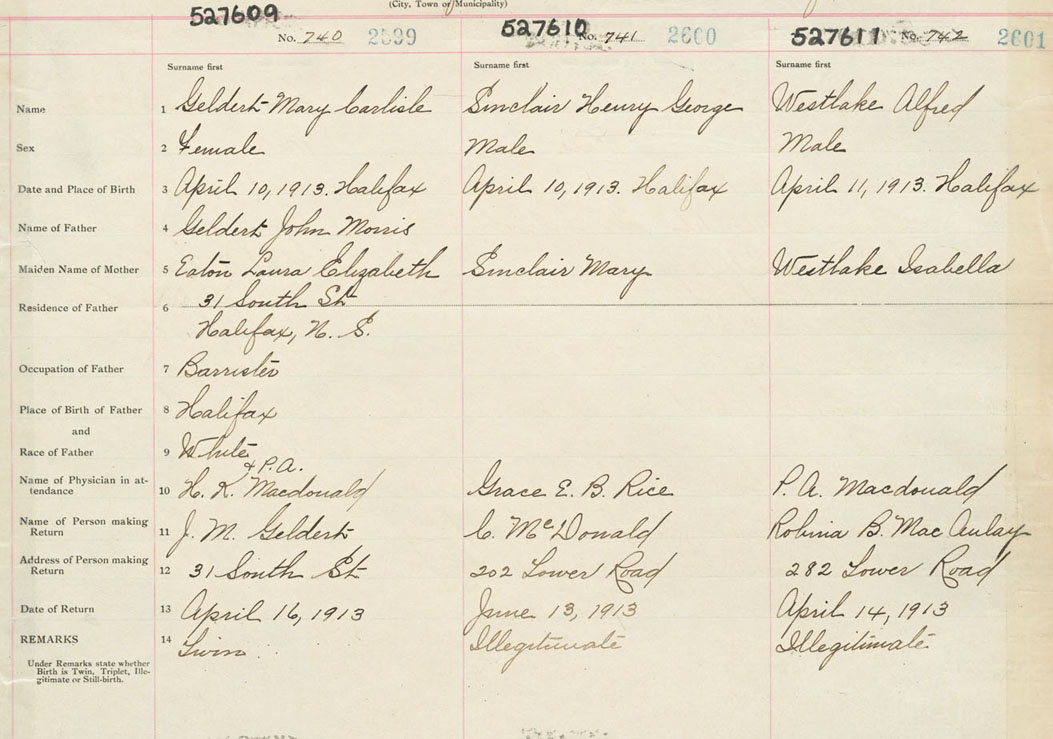 (City, Town or Municipality)
527609 527610 527611
No. 740 2599 No. 741 2600 No. 742 2601
Surname first Surname first Surname first
Name 1 Geldert Mary Carlisle Sinclair Henry George Westlake Alfred
Sex 2 Female Male Male
Date and Place of Birth 3 April 10, 1913. Halifax April 10, 1913. Halifax April 11, 1913. Halifax
Name of Father 4 Geldert John Morris
Maiden Name of Mother 5 Eaton Laura Elizabeth Sinclair Mary Westlake Isabella
Residence of Father 6 31 South St
Halifax, N. S.
Occupation of Father 7 Barrister
Place of Birth of Father 8 Halifax
and
Race of Father 9 White
& P.A.
Name of Physician in at-
tendance 10 H. K. Macdonald Grace E. B. Rice P. A. Macdonald
Name of Person making
Return 11 J. M. Geldert C. McDonald Robina B. MacAulay
Address of Person making
Return 12 31 South St 202 Lower Road 282 Lower Road
Date of Return 13 April 16, 1913 June 13, 1913 April 14, 1913
REMARKS 14 Twin Illegitimate Illegitimate
Under Remarks state whether
Birth is Twin, Triplet, Ille-
gitimate or Still-birth.